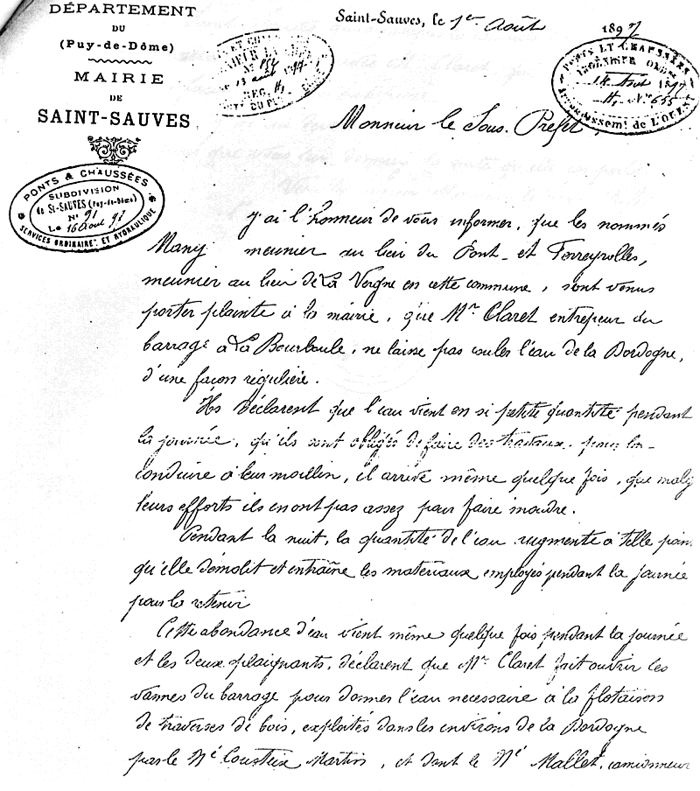 DÉPARTEMENT
DU
(Puy-de-Dôme)
MAIRIE
DE
SAINT-SAUVES
Saint-Sauves, le 1er Août 1897
PONTS ET CHAUSSÉES
INGÉNIEUR ORDRE
14 Août 1897
N° 655
Arrondissemt de L'OUEST
Monsieur le Sous-Préfet,
PONTS & CHAUSSÉES
SUBDIVISION
de St-SAUVES (Puy-de-Dôme)
N° 91
Le 16 Août 97
SERVICES ORDINAIRE ET HYDRAULIQUE
J'ai l'honneur de vous informer, que les nommés
Many meunier au lieu du Pont et Ferreyrolles,
meunier au lieu de La Vergne en cette commune, sont venus
porter plainte à la mairie, que Mr Claret entrepeur du
barrage à La Bourboule, ne laisse pas couler l'eau de la Dordogne,
d'une façon régulière.
Ils déclarent que l'eau vient en si petite quantité pendant
la journée, qu'ils sont obligés de faire des travaux pour la
conduire à leur moulin, il arrive même quelque fois, que malg
leurs efforts ils en ont pas assez pour faire moudre.
Pendant la nuit, la quantité de l'eau augmente à telle poin
qu'elle démolit et entraîne les matériaux employés pendant la journée
pour la retenir
Cette abondance d'eau vient même quelque fois pendant la journée
et les deux plaignants, déclarent que Mr Claret fait ouvrir les
vannes du barrage pour donner l'eau necessaire à la flotaison
de traverses de bois, exploités dans les environs de la Dordogne
par le Né Cousteix Martin, et dont le Né Mallet, camionneur